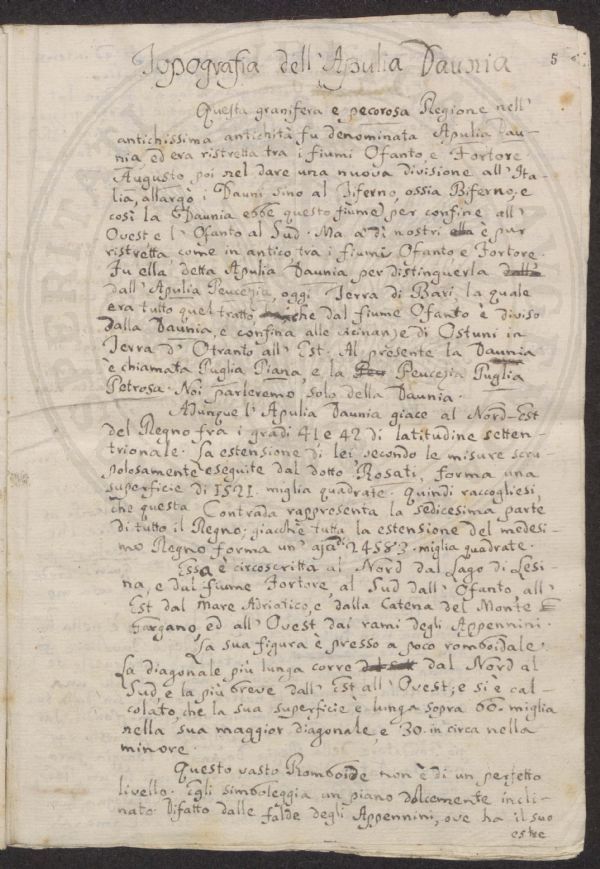 5
Topografia dell' Apulia Daunia
Questa granifera e pecorosa Regione nell'
antichissima antichità fu denominata Apulia Dau-
nia ed era ristretta tra i fiumi Ofanto, e Fortore
Augusto poi nel dare una nuova divisione all' Ita-
lia, allargò i Dauni sino al Tiferno, ossia Biferno, e
così la Daunia ebbe questo fiume per confine all'
Ovest e l' Ofanto al Sud. Ma a dì nostri ella è pur
ristretta come in antico tra i fiumi Ofanto e Fortore.
Fu ella detta Apulia Daunia per distinguerla dalla
dall' Apulia Peucezia, oggi Terra di Bari, la quale
era tutto quel tratto che dal fiume Ofanto è diviso
dalla Daunia, e confina alle vicinanze di Ostuni in
Terra d' Otranto all' Est. Al presente la Daunia
è chiamata Puglia Piana, e la Peu Peucezia Puglia
Petrosa. Noi parleremo solo della Daunia.
Adunque l' Apulia Daunia giace al Nord-Est
del Regno fra i gradi 41 e 42 di latitudine setten-
trionale. La estensione di lei secondo le misure scru-
polosamente eseguite dal dotto Rosati, forma una
superficie di 1521. miglia quadrate. Quindi raccogliesi,
che questa Contrada rappresenta la sedicesima parte
di tutto il Regno; giacchè tutta la estensione del medesi-
mo Regno forma un' aja di 24583. miglia quadrate.
Essa è circoscritta al Nord dal Lago di Lesi-
na, e dal fiume Fortore, al Sud dall' Ofanto, all'
Est dal Mare Adriatico, e dalla Catena del Monte
Gargano, ed all' Ovest dai rami degli Appennini.
La sua figura è presso a poco romboidale.
La diagonale più lunga corre dal dal Nord al
Sud, e la più breve dall' Est all' Ovest; e si è cal-
colato, che la sua superficie è lunga sopra 60. miglia
nella sua maggior diagonale, e 30. in circa nella
minore.
Questo vasto Romboide non è di un perfetto
livello. Egli simboleggia un piano dolcemente incli-
nato. Difatto dalle falde degli Appennini, ove ha il suo
estre